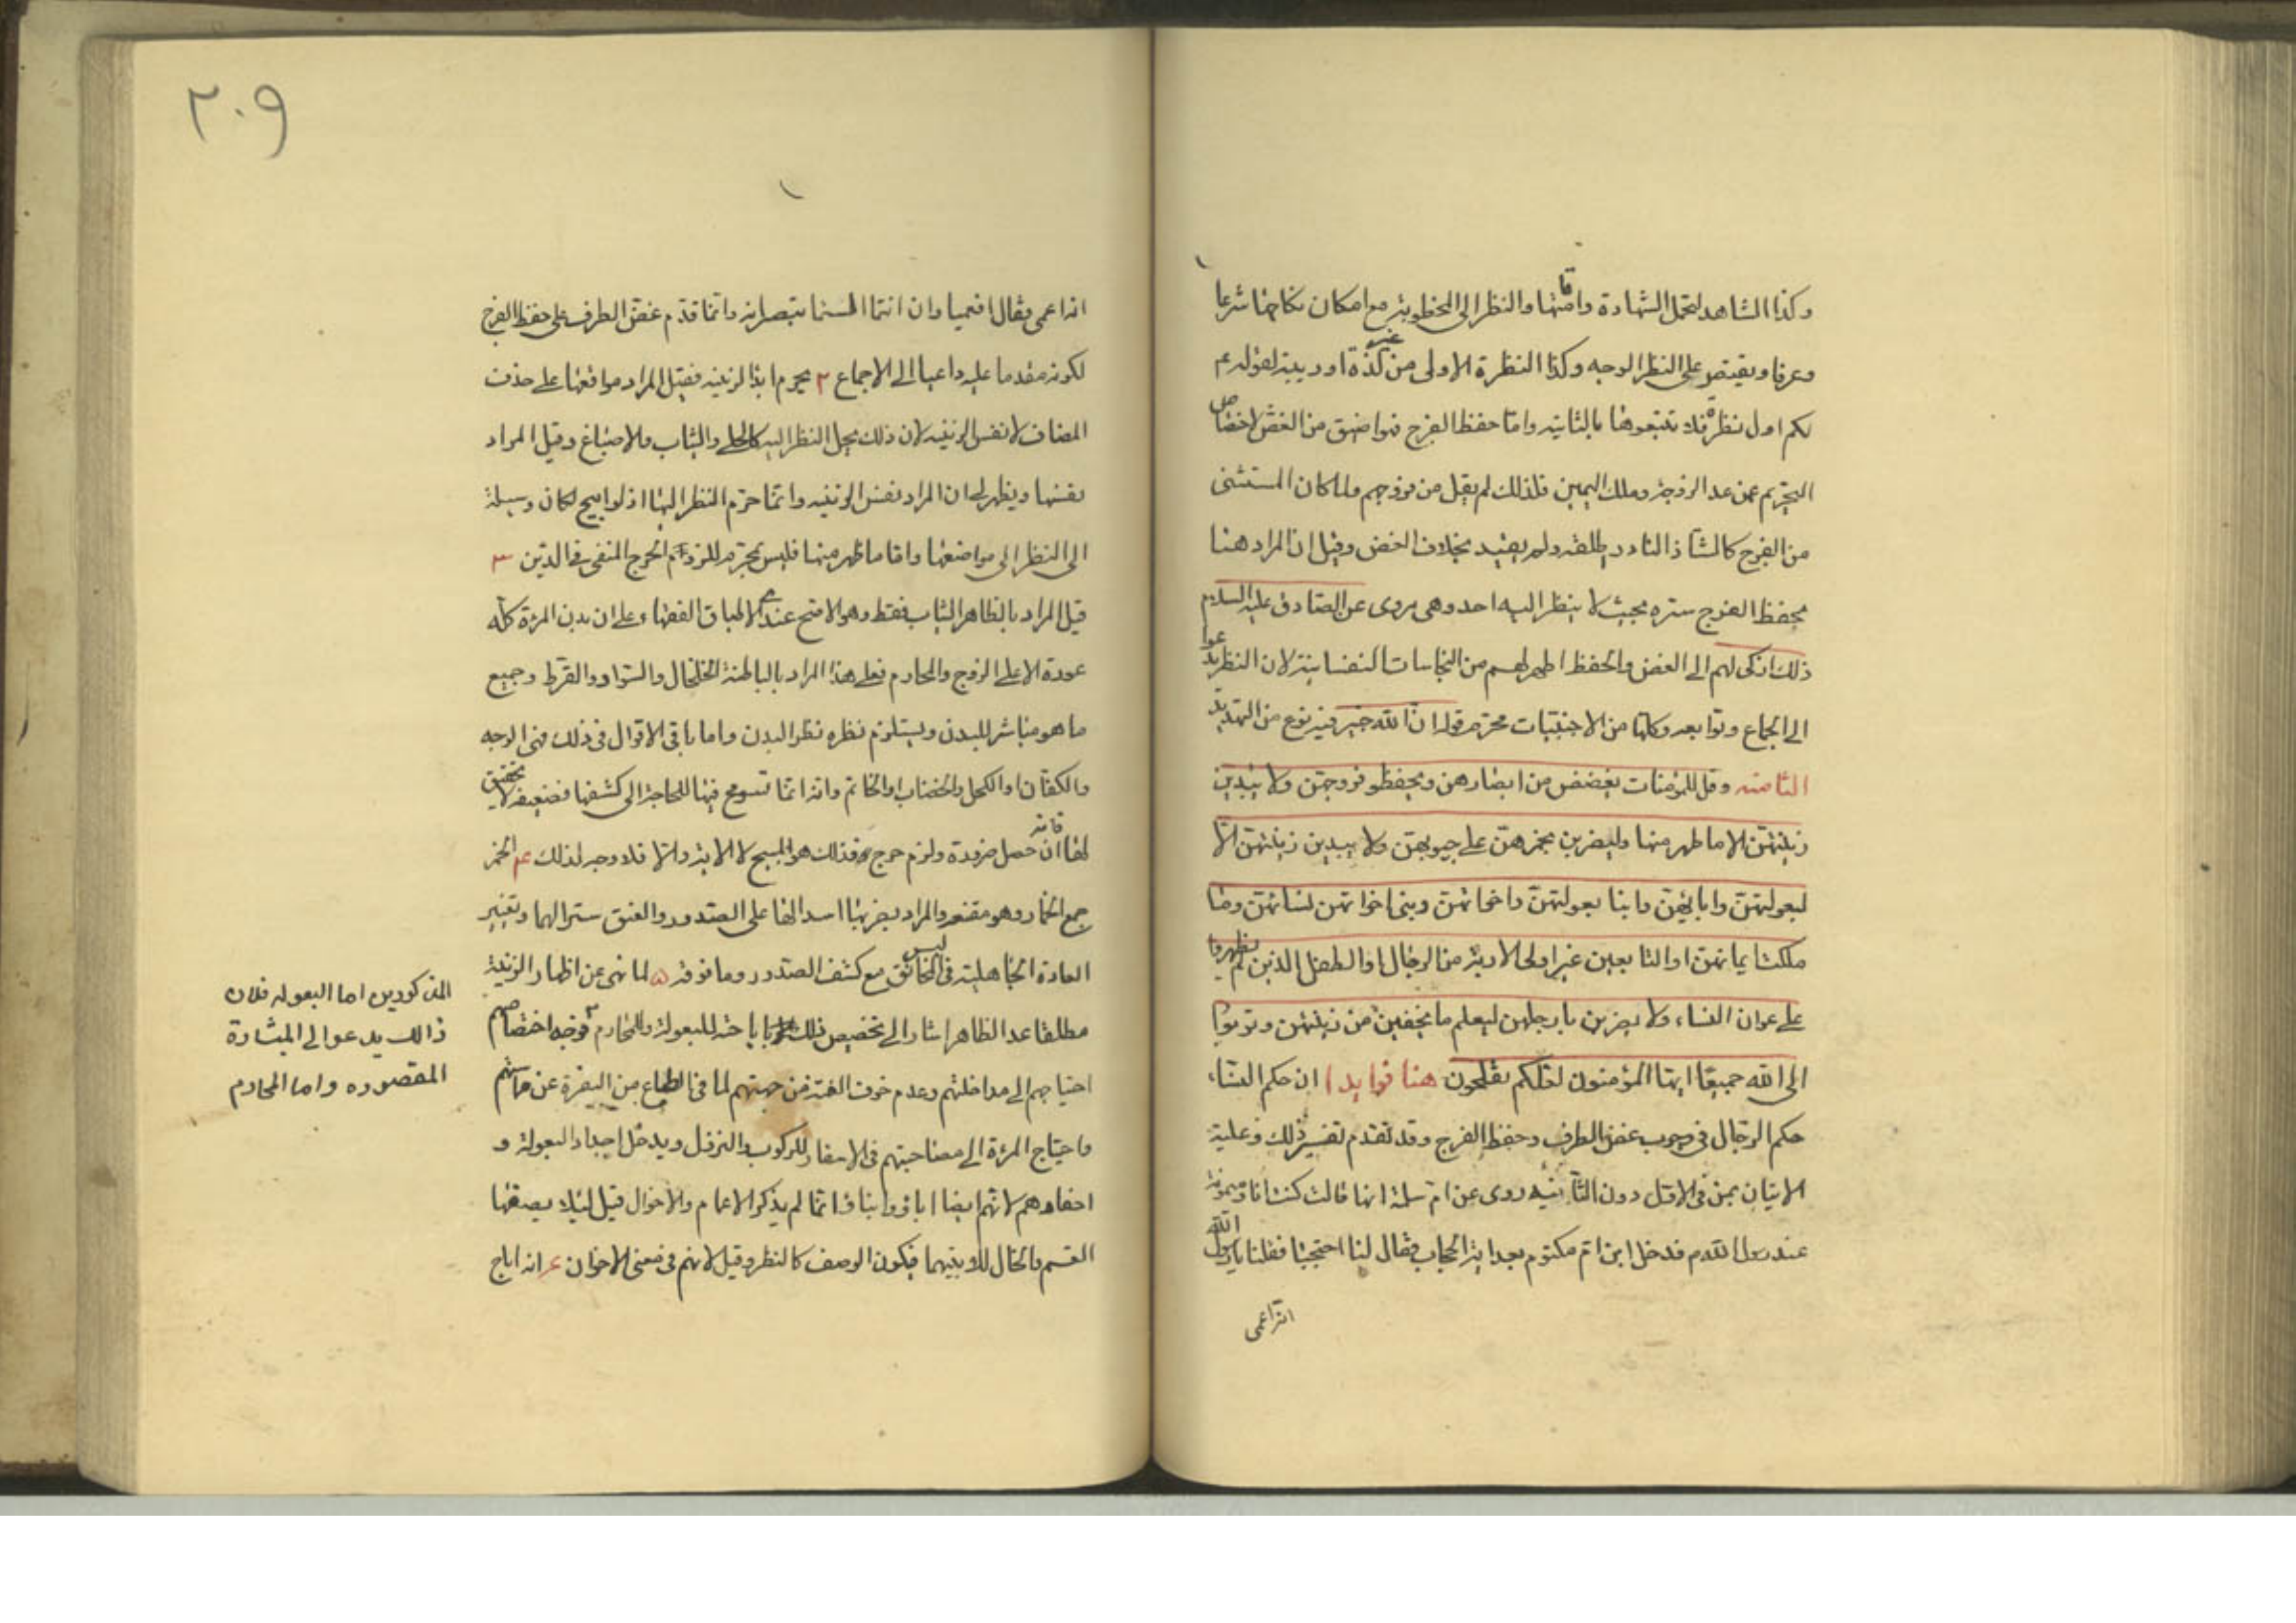 وكذا الشاهد لتحمل الشهادة واقامتها والنظر الى المخطوبة مع امكان نكاحها شرعا
وعرفا ويقتصر على النظر الوجه وكذا النظرة الاولى من غير لذة او ريبة لقوله عم
لكم اول نظرة فلا تتبعوها بالثانية واما حفظ الفرج فهو اضيق من الغض لاختصاص
التحريم عمن عدا الزوجة وملك اليمين فلذلك لم يقل من فروجهم ولما كان المستثنى
من الفرج كالشاذ النادر اطلقه ولم يقيد بخلاف الغض وقيل ان المراد هنا
بحفظ الفرج ستره بحيث لا ينظر اليه احد وهى مروى عن الصادق عليه السلام
ذلك ازكى لهم الى الغض والحفظ اطهر لهم من النجاسات النفسانية لان النظر يدعوا
الى الجماع وتوابعه وكلها من الاجنبيات محترم قوله ان الله خبير فيه نوع من التهديد
الثامنه وقل للمؤمنات يغضضن من ابصارهن ويحفظو فروجهن ولا يبدين
زينتهن الا ما ظهر منها وليضربن بخمرهن على جيوبهن ولا يبدين زينتهن الا
لبعولتهن وابائهن وابنا بعولتهن واخوانهن وبنى اخوانهن نسائهن وما
ملكت ايمانهن او التابعين غير اولى الاربة من الرجال او الطفل الذين لم يظهروا
على عورات النساء ولا يضربن بارجلهن ليعلم ما يخفين من زينتهن وتوبوا
الى الله جميعا ايها المؤمنون لعلكم تفلحون هنا فوايد ا ان حكم النساء
حكم الرجال فى وجوب غض الطرف وحفظ الفرج وقد تقدم تفسير ذلك وعلية
الاتيان بمن فى الاول دون الثانيه روى عن ام سلمة انها قالت كنت انا وميمونة
عند رسول الله ص فدخل ابن ام مكتوم بعد اية الحجاب فقال لنا احتجبا فقلنا يا رسول الله
انه اعمى
٢٠٩
انه اعمى فقال افعميا وان انتما الستما تبصرانه وانما قدم غض الطرف على حفظ الفرج
لكونه مقدما عليه داعيا الى الاجماع ٢ يحرم ابدا الزينه فقيل المراد مواقعها على حذف
المضاف لا نفس الزينه لان ذلك يحل النظر اليه كالحلى والثياب والاصباغ وقيل المراد
نفسها ويظهر لى ان المراد نفس الزينه وانما حرم النظر اليها اذ لو ابيح لكان وسيلة
الى النظر الى مواضعها واما ما ظهر منها فليس بمحرم للزوم الحرج المنفى فى الدين ٣
قيل المراد بالظاهر الثياب فقط وهو الاصح عندى لاطباق الفقهاء على ان بدن المرئة كله
عورة الا على الزوج والمحارم فعلى هذا المراد بالباطنة الخلخال والسوار والقرط وجميع
ما هو مباشر للبدن ويستلزم نظره نظر البدن واما باقى الاقوال فى ذلك فهى الوجه
والكفان او الكحل والخضاب والخاتم وانه انما تسومح فيها للحاجة الى كشفها فضعيف لا تحقيق
لها فانه ان حصل ضرورة ولزم حرج فذلك هو المبيح لا الاية والا فلا وجه لذلك عم الخمر
جمع الخمار وهو مقنعه والمراد بضربها اسدالها على الصدور والعنق سترا لهما وتغيير
العادة الجاهلية فى لبس الخانق مع كشف الصدور وما فوقه ٥ لما نهى عن اظهار الزينة
مطلقا عدا الظاهر اشار الى تخصيص ذلك باباحته للبعولة والمحارم فوجه اختصاصهم
احتياجهم الى مداخلتهم وعدم خوف الفتنه من جهتهم لما فى الطباع من النفرة عن مماستهم
واحتياج المرئة الى مصاحبتهم فى الاسفار للركوب والنزول ويدخل اجداد البعولة و
احفادهم لانهم ايضا اباؤ وابناؤ انما لم يذكر الاعمام والاخوال قيل لئلا يصفها
العم والخال لابنيهما فيكون الوصف كالنظر وقيل لانهم فى معنى الاخوان عر انه اباح
المذكورين اما البعوله فلان
ذالك يدعوا الى المباشرة
المقصوده واما المحارم